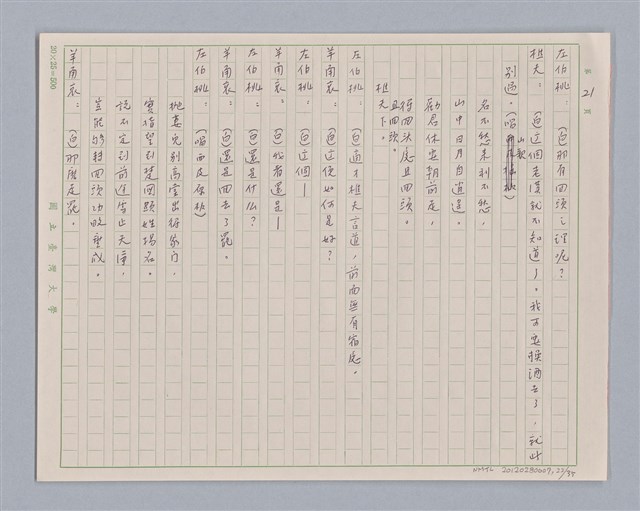 第 21 頁
左伯桃：（白）那有回頭之理呢？
樵夫：（白）這個老漢就不知道了。我可要換酒去了，就此
別過。（唱山歌）
名不然來利不愁，
山中日月自逍遥。
勸君休要朝前走，
得回頭處且回頭。
且回頭。
樵夫下。
左伯桃：（白）適才樵夫言道，前面無有宿處。
羊角哀：（白）這便如何是好？
左伯桃：（白）這個—
羊角哀：（白）怕者還是—
左伯桃：（白）還是什么？
羊角哀：（白）還是回去了罷。
左伯桃：（唱西皮原板）
抛妻兒別高堂出得家門，
實指望到楚國顯姓揚名。
說不定到前途皆止天津，
豈能夠轉回頭功敗垂成。
羊角哀：（白）那麼走罷。
20×25=500
國立臺灣大學
NMTL 20120280009, 22/35